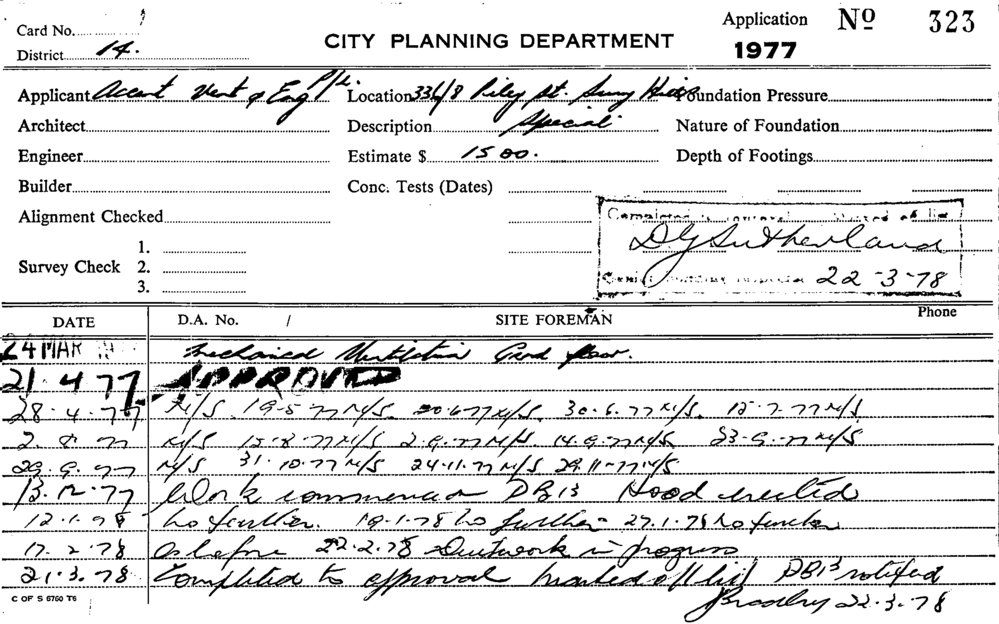 Card No. 7
District 14.
CITY PLANNING DEPARTMENT
Application Nº 323
1977
Applicant Accent Vent & Eng P/L Location 336/8 Riley St. Surry Hills Foundation Pressure
Architect Description Special Nature of Foundation
Engineer Estimate $ 1500. Depth of Footings
Builder Conc. Tests (Dates)
Alignment Checked
Completed to approval of list
D G Sutherland
22-3-78
Survey Check
1.
2.
3.
DATE D.A. No. / SITE FOREMAN Phone
24 MAR Mechanical Ventilation Grnd floor.
21.4 77 APPROVED
28.4.77 N/S. 19-5-77 N/S. 20-6-77 N/S. 30.6.77 N/S. 15-7-77 N/S
2.8.77 N/S 15-8-77 N/S 2-9-77 N/S. 14.9.77 N/S. 23-9-77 N/S
29.9.77 N/S 31.10.77 N/S 24.11.77 N/S 29.11-77 N/S
13.12.77 Work commenced DB13 Hood erected
12.1.78 No further. 19.1.78 No further 27.1.78 No further
17.2.78 As before 22.2.78 Ductwork in progress
21.3.78 Completed to approval marked off list DB13 notified
Bradley 22.3.78
C OF S 6760 T6